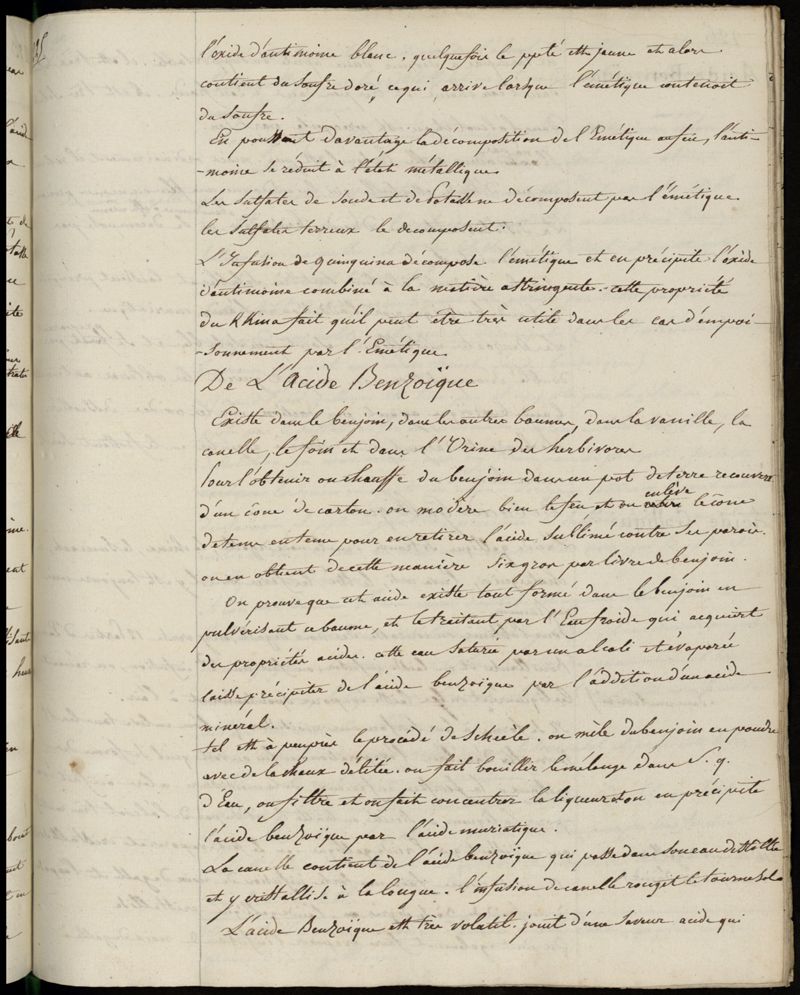 l'oxide d'antimoine blanc. quelquefois le ppté est jaune et alors
contient du soufre doré ce qui arrive lorsque l'émétique contenoit
du soufre.
En poussant davantage la décomposition de l'Emétique au feu, l'anti-
-moine se réduit à l'état métallique
Les sulfates de soude et de Potasse ne décomposent pas l'émétique
les sulfates terreux le decomposent.
L'Infusion de quinquina décompose l'émétique et en précipite l'oxide
d'antimoine combiné à la matière astringente. cette propriété
du KKina fait qu'il peut être très utile dans les cas d'empoi-
-sonnement par l'Emétique
De L'Acide Benzoïque
Existe dans le benjoin, dans les autres baumes, dans la vanille, la
canelle, le foin et dans l'Urine des herbivores
Pour l'obtenir on chauffe du benjoin dans un pot de terre recouvert
d'un cône de carton. on modère bien le feu et on enlève le cone
de tems en tems pour en retirer l'acide sublimé contre ses parois.
on en obtient de cette manière six gros par livre de benjoin.
On prouve que cet acide existe tout formé dans le benjoin en
pulvérisant ce baume, et le traitant par l'Eau froide qui acquiert
des propriétés acides. cette eau saturée par un alcali et évaporée
laisse précipiter de l'acide benzoïque par l'addition d'un acide
minéral.
tel est à peu près le procédé de Schéele. on mêle du benjoin en poudre
avec de la chaux délitée. on fait bouillir le mélange dans S. q.
d'Eau, on filtre et on fait concentrer la liqueur et on en précipite
l'acide benzoïque par l'acide muriatique.
La canelle contient de l'acide benzoïque qui passe dans son eau distillée
et y cristallise à la longue. l'infusion de canelle rougit le tournesol
L'acide Benzoïque est très volatil. jouit d'une saveur acide qui